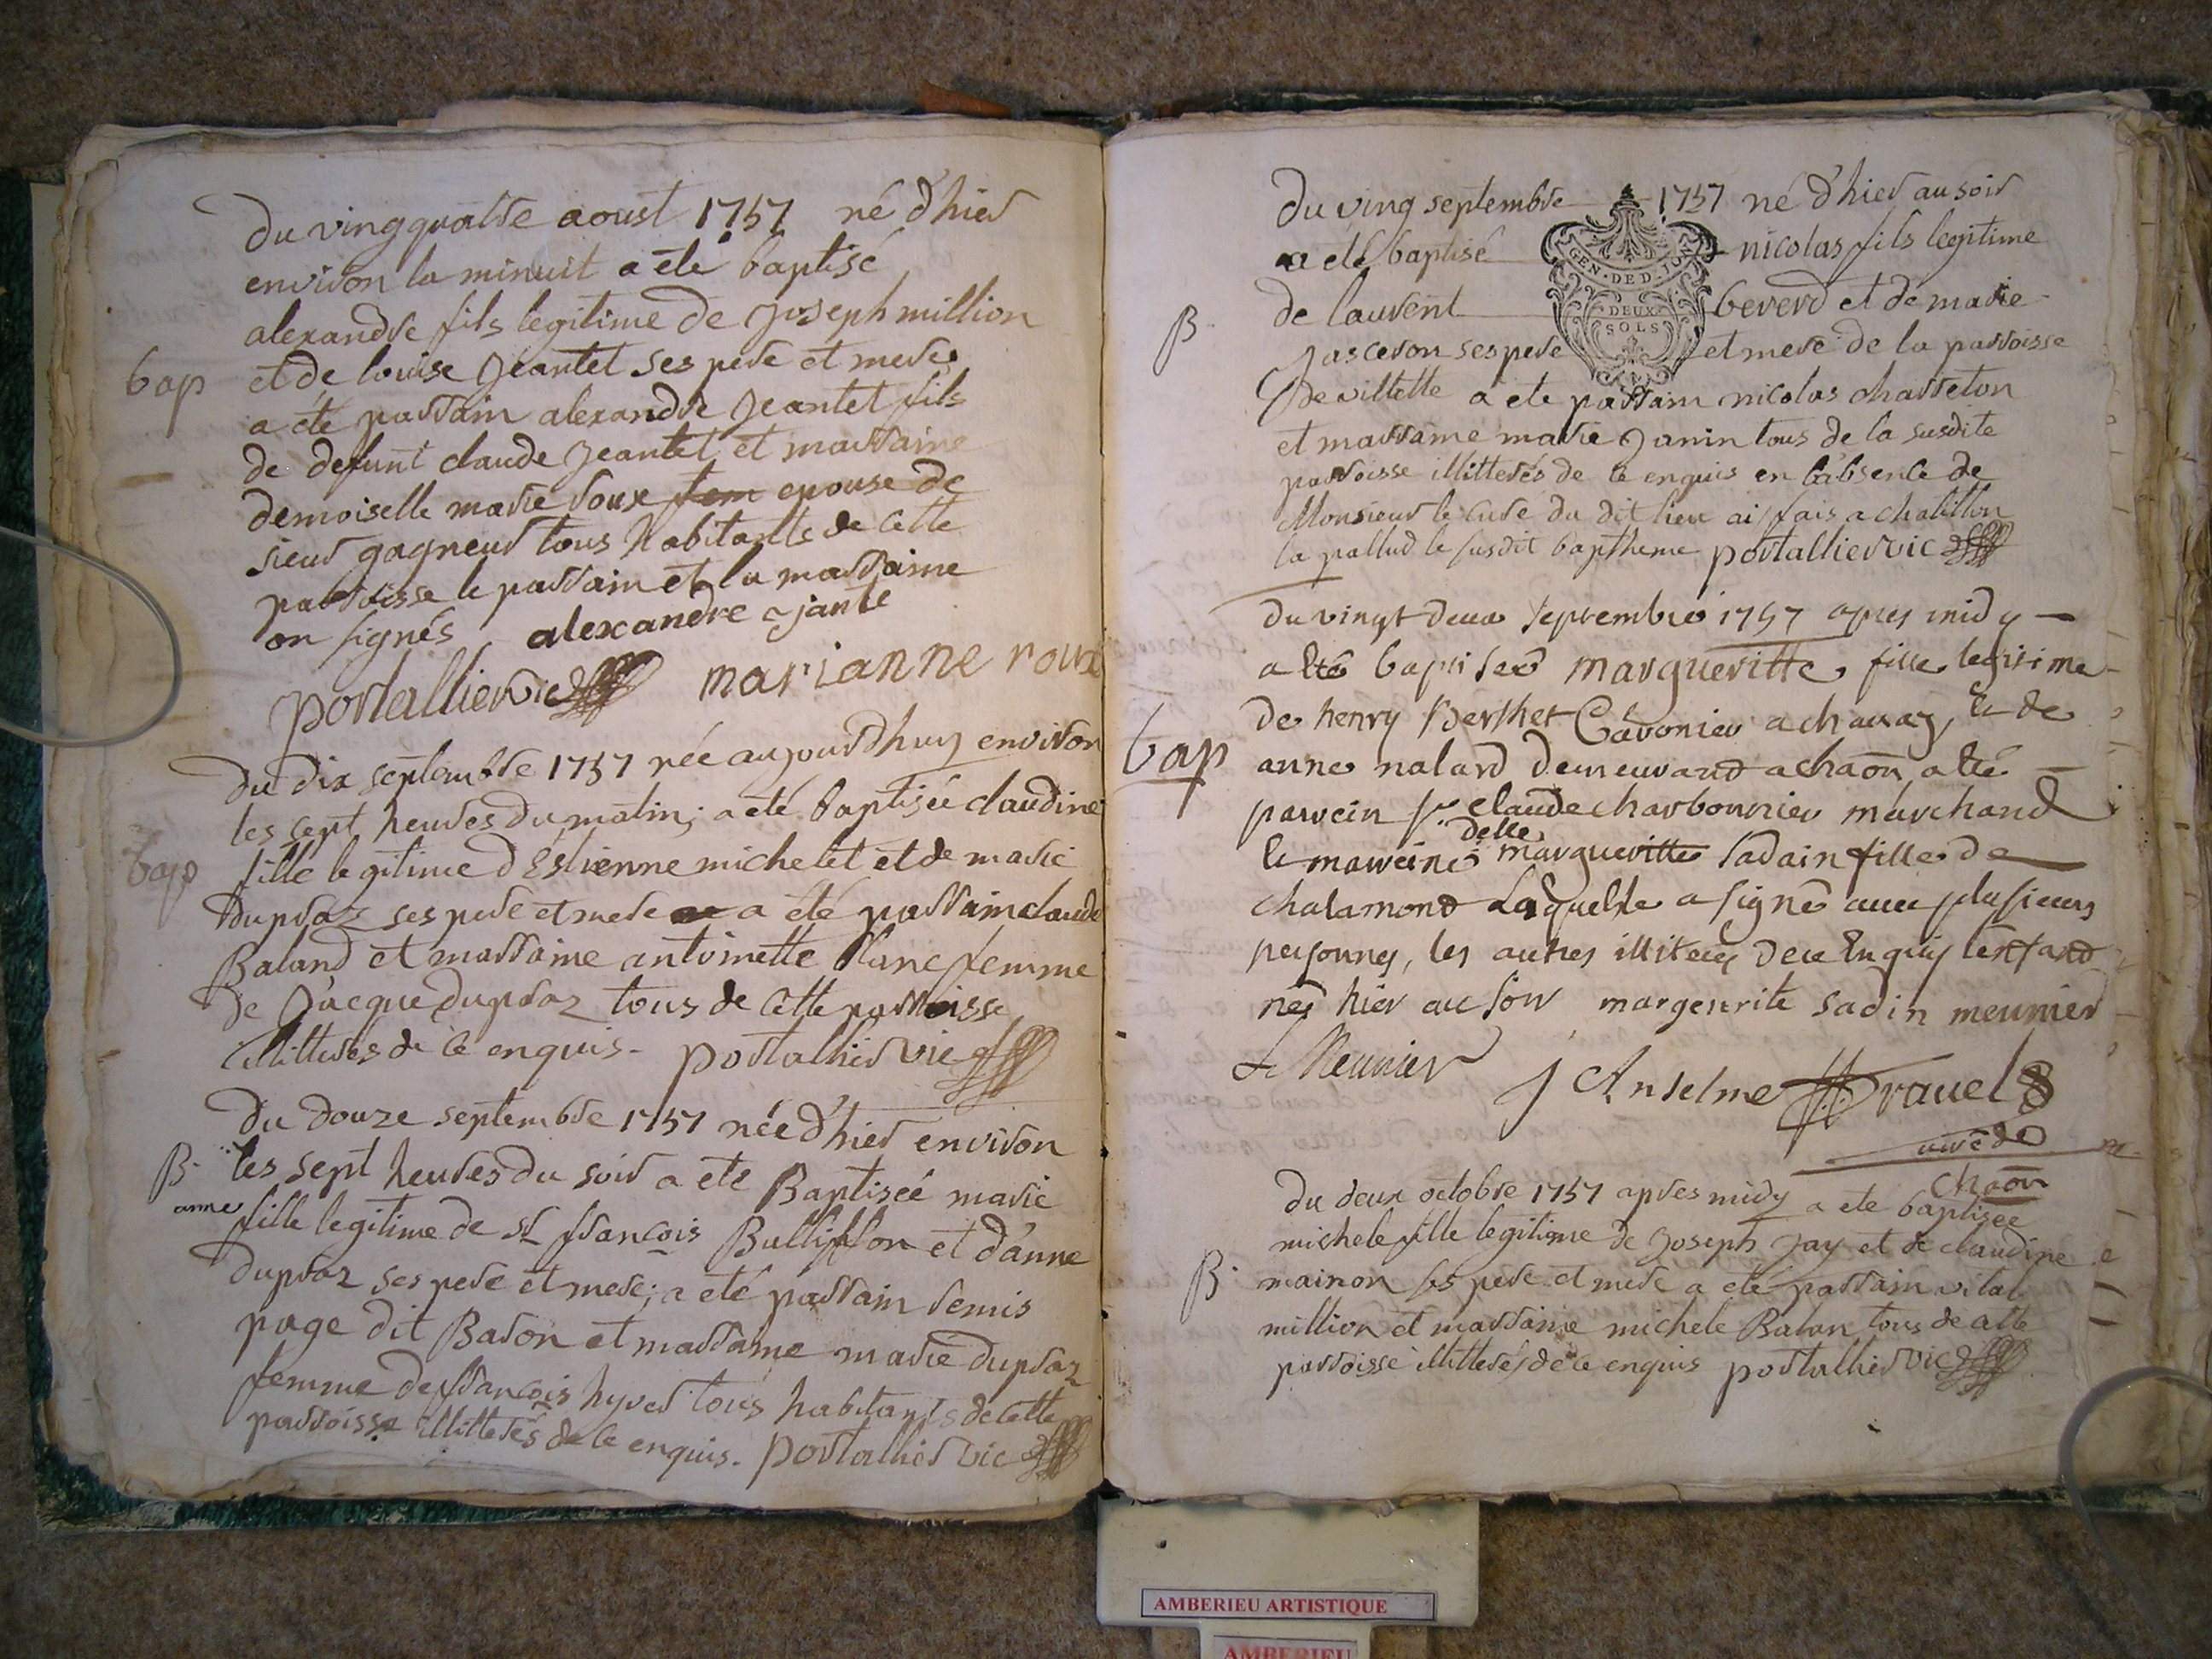 du vingquatre aoust 1757 né d'hier
environ la minuit a été baptisé
alexandre fils legitime de Joseph million
bap
et de louise Jeantet ses pere et mere
a été parrain alexandre Jeantet fils
de defunt claude Jeantet et marraine
demoiselle marie roux fem epouse de
sieur gagneur tous habitants de cette
parroisse le parrain et la marraine
on signés alexcandre jante
portallier vic marianne roux
du dix septembre 1757 née aujourdhuy environ
les sept heures du matin; a été baptisée claudine
bap
fille legitime d'Estienne michelet et de marie
dupraz ses pere et mere a été parrain claude
Baland et marraine antoinette blanc femme
de Jacque dupraz tous de cette parroisse
illitterés de ce enquis - portallier vic
du douze septembre 1757 née d'hier environ
B.
les sept heures du soir a eté Baptisée marie
anne
fille legitime de sr francois Bullifflon et d'anne
dupraz ses pere et mere; a eté parrain remis
page dit Baron et marraine marie dupraz
femme de francois hyver tous habitants de cette
parroisse illitterés de ce enquis. portallier vic
du ving septembre 1757 né d'hier au soir
a eté baptisé nicolas fils legitime
B.
de laurent bererd et de marie
Jasceron ses pere et mere de la parroisse
de villette a ete parrain nicolas charreton
et marraine marie Janin tous de la susdite
parroisse illitterés de ce enquis en l'absence de
Monsieur le curé du dit lieu ai fais a chatillon
la pallud le susdit baptheme portallier vic
GEN. DE D.
DEUX
SOLS
du vingt deux septembre 1757 apres midy
a été baptiseé margueritte fille legitime
de henry berthet Cavonier a chavaz, et de
bap
anne nalard demeurand a chaon, a été
parrein sr. claude charbonnier marchand
delle
et marreine margueritte sadain fille de
chalamond laquelle a signé avec plusieurs
personnes, les autres illiterés de ce enquis l'enfand
neé hier au soir margerite sadin meunier
Meunier J Anselme ravel
curé de
chaon
du deux octobre 1757 apres midy a eté baptisée
michele fille legitime de Joseph Jay et de claudine
B.
mainon ses pere et mere a été parrain vital
million et marraine michele Balan tous de cette
parroisse illitterés de ce enquis portallier vic
AMBERIEU ARTISTIQUE
AMBERIEU